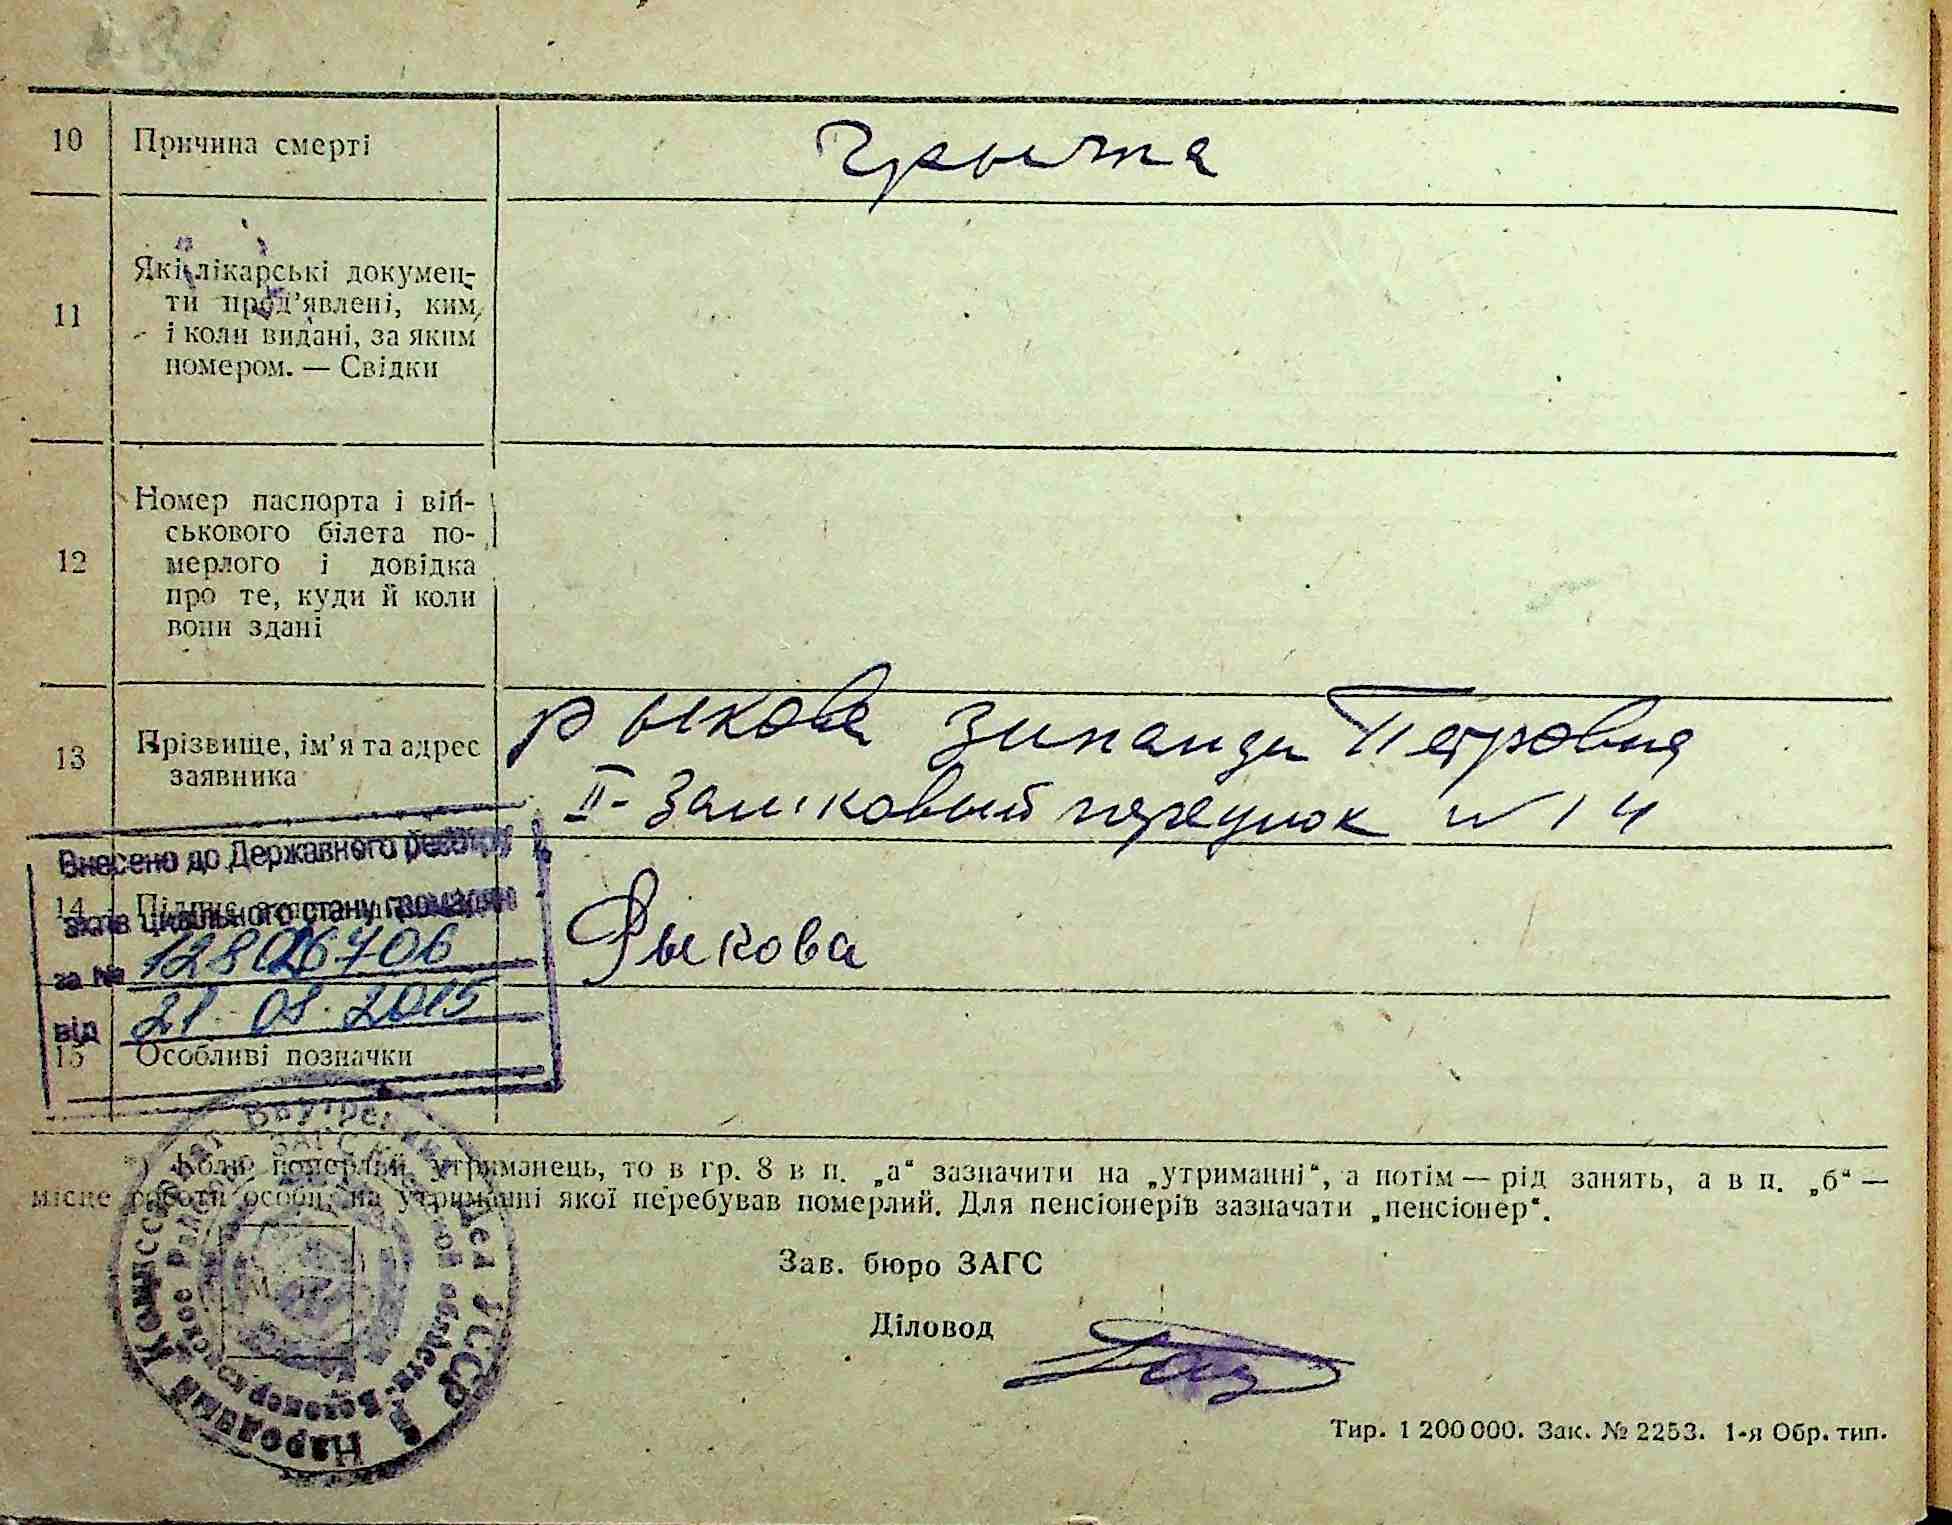 10 Причина смерті грыжа
11 Які лікарські докумен-
ти пред'явлені, ким
і коли видані, за яким
номером. — Свідки
12 Номер паспорта і вій-
ськового білета по-
мерлого і довідка
про те, куди й коли
вони здані
13 Прізвище, ім'я та адрес
заявника
Рыкова Зинаида Петровна
II-Замковый переулок № 14
Внесено до Державного реєстру
актів цивільного стану громадян
за № 12826706
від 21.08.2015
14 Підпис
Рыкова
15 Особливі позначки
*) Коли померлий утриманець, то в гр. 8 в п. „а“ зазначити на „утриманні“, а потім — рід занять, а в п. „б“ —
місце роботи особи, на утриманні якої перебував померлий. Для пенсіонерів зазначати „пенсіонер“.
Народный Комиссариат Внутренних Дел УССР
Зав. бюро ЗАГС
Діловод
Тир. 1 200 000. Зак. № 2253. 1-я Обр. тип.